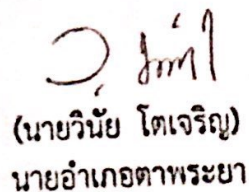 (นายวินัย โตเจริญ)
นายอำเภอตาพระยา